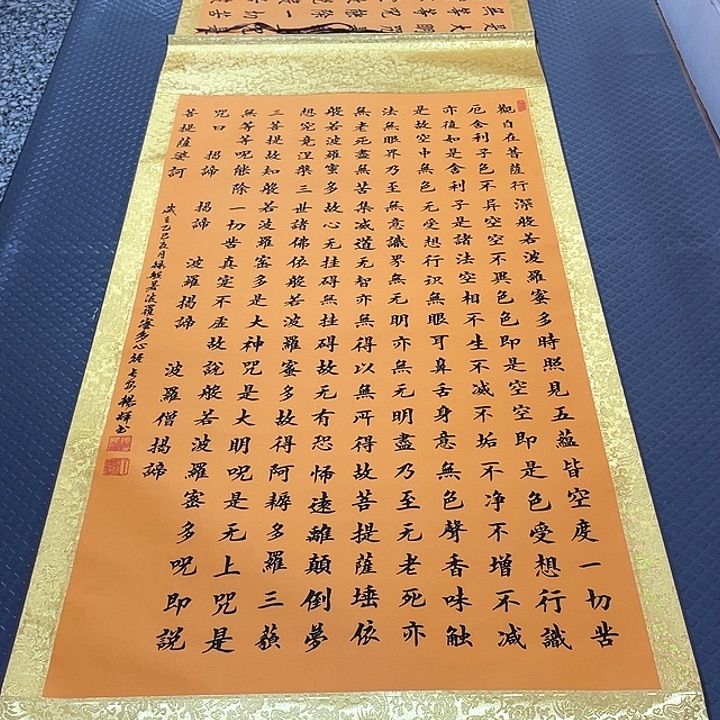 觀自在菩薩行深般若波羅蜜多時照見五蘊皆空度一切苦
厄舍利子色不异空空不異色色即是空空即是色受想行識
亦復如是舍利子是諸法空相不生不滅不垢不净不增不减
是故空中無色无受想行识無眼耳鼻舌身意無色聲香味触
法無眼界乃至無意識界無无明亦無无明盡乃至无老死亦
無老死盡無苦集滅道无智亦無得以無所得故菩提薩埵依
般若波羅蜜多故心无挂碍無挂碍故无有恐怖遠離顛倒夢
想究竟涅槃三世諸佛依般若波羅蜜多故得阿耨多羅三藐
三菩提故知般若波羅蜜多是大神咒是大明呪是无上咒是
無等等呪能除一切苦真定不虚故説般若波羅蜜多呪即説
咒曰 揭諦 揭諦 波羅揭諦 波羅僧揭諦
菩提薩婆訶
歲在乙巳五月録般若波羅蜜多心經